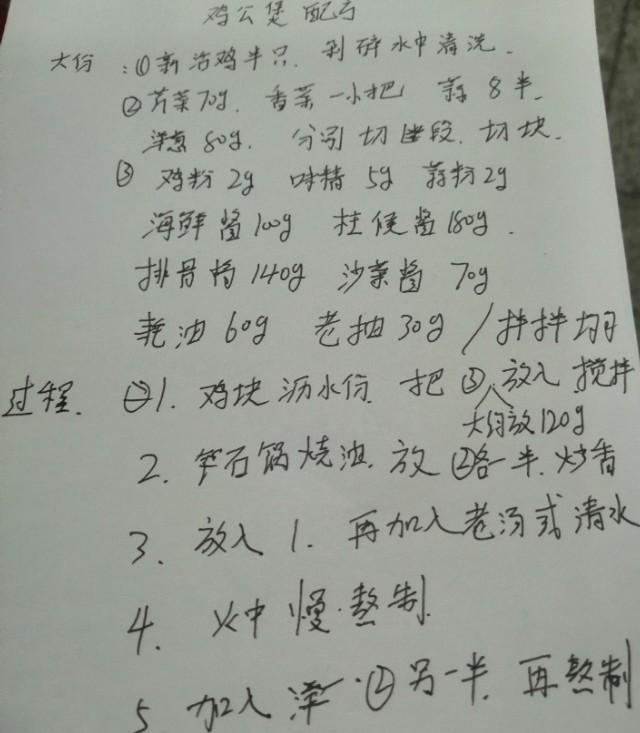 鸡公煲 配方
大份：①新活鸡半只，剁碎水中清洗。
②芹菜70g，香菜一小把 蒜8半，
洋葱80g，分别切段，切块。
③ 鸡粉2g 味精5g 蒜粉2g
海鲜酱100g 柱侯酱180g．
排骨酱140g 沙茶酱70g
耗油60g 老抽30g / 拌拌均匀
过程．1．鸡块沥水份．把③放入搅拌
大约放120g
2．石锅烧油．放②各一半．炒香
3．放入1．再加入老汤或清水
4．火中慢．熬制．
5 加入②另一半．再熬制